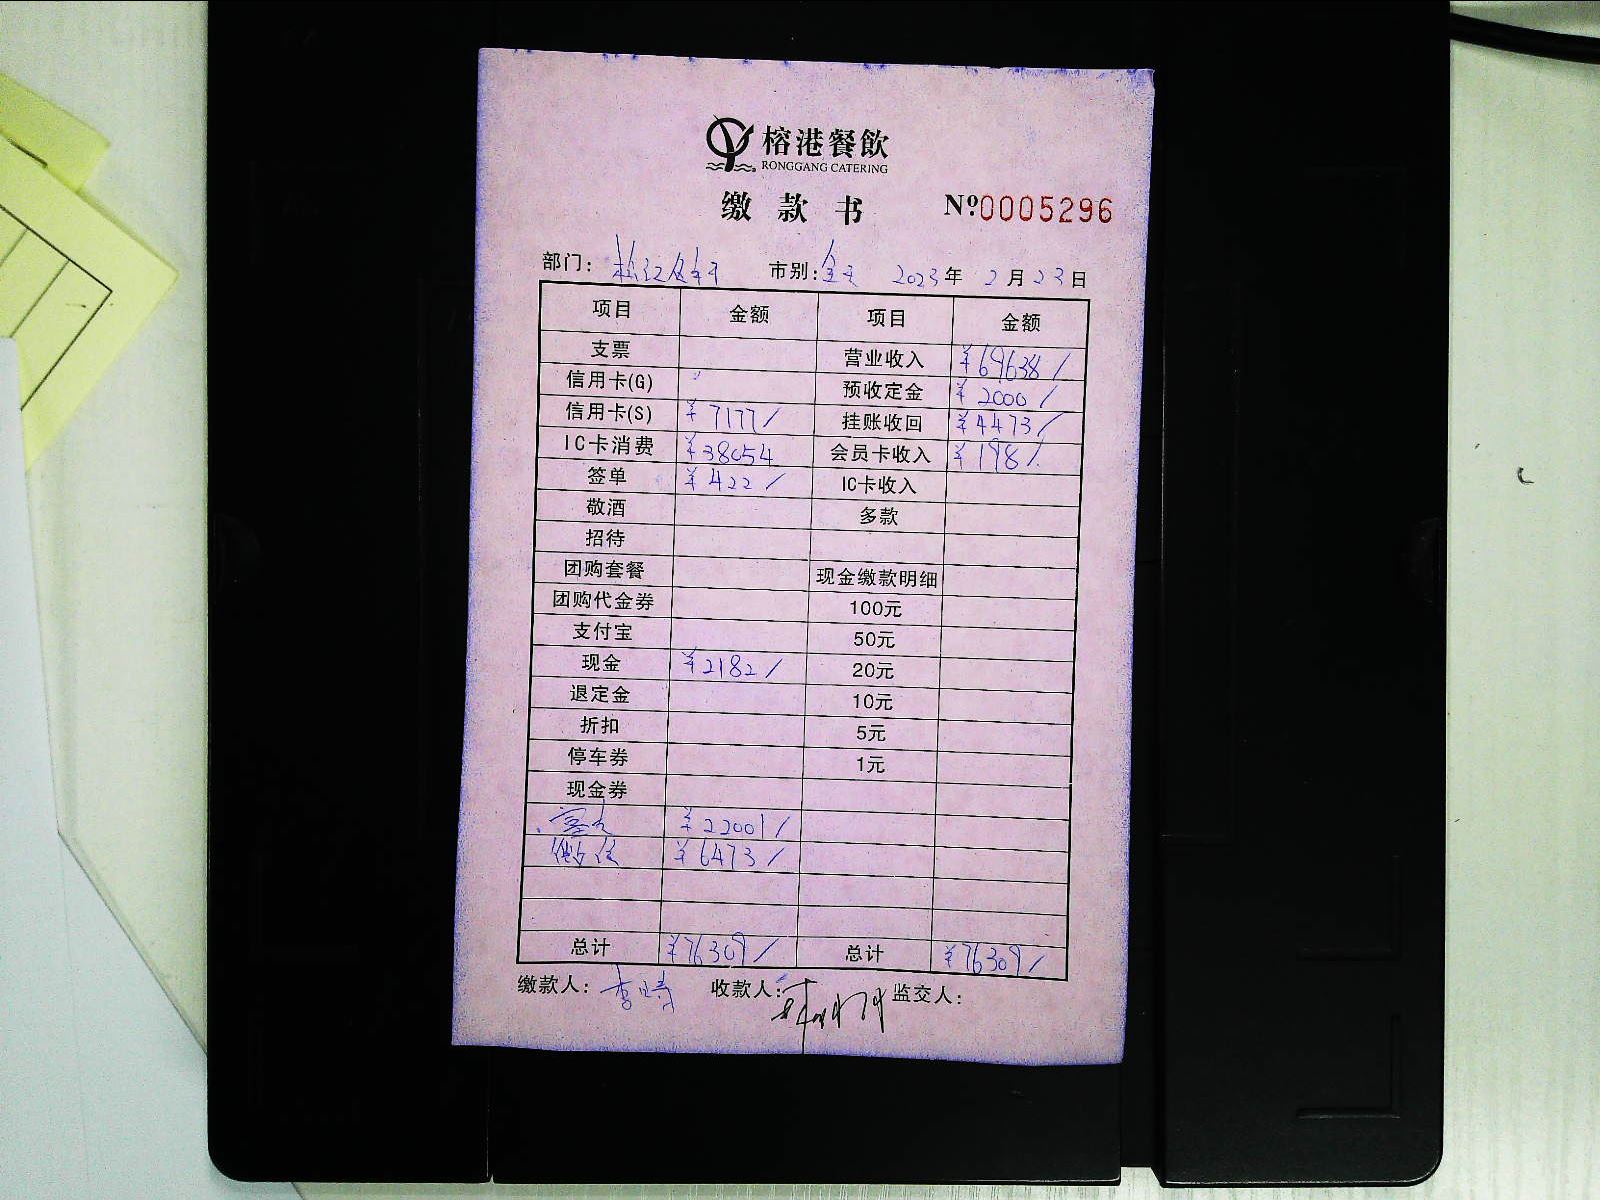 榕港餐飲
RONGGANG CATERING
缴款书 Nº0005296
部门： 市别：全天 2023年2月23日
项目 金额 项目 金额
支票 营业收入 ¥69638/
信用卡(G) 预收定金 ¥2000/
信用卡(S) ¥7177/ 挂账收回 ¥4473/
IC卡消费 ¥38054 会员卡收入 ¥198/
签单 ¥422/ IC卡收入
敬酒 多款
招待
团购套餐 现金缴款明细
团购代金券 100元
支付宝 50元
现金 ¥2182/ 20元
退定金 10元
折扣 5元
停车券 1元
现金券
¥22001/
微信 ¥6473/
总计 ¥76309/ 总计 ¥76309/
缴款人： 收款人： 监交人：